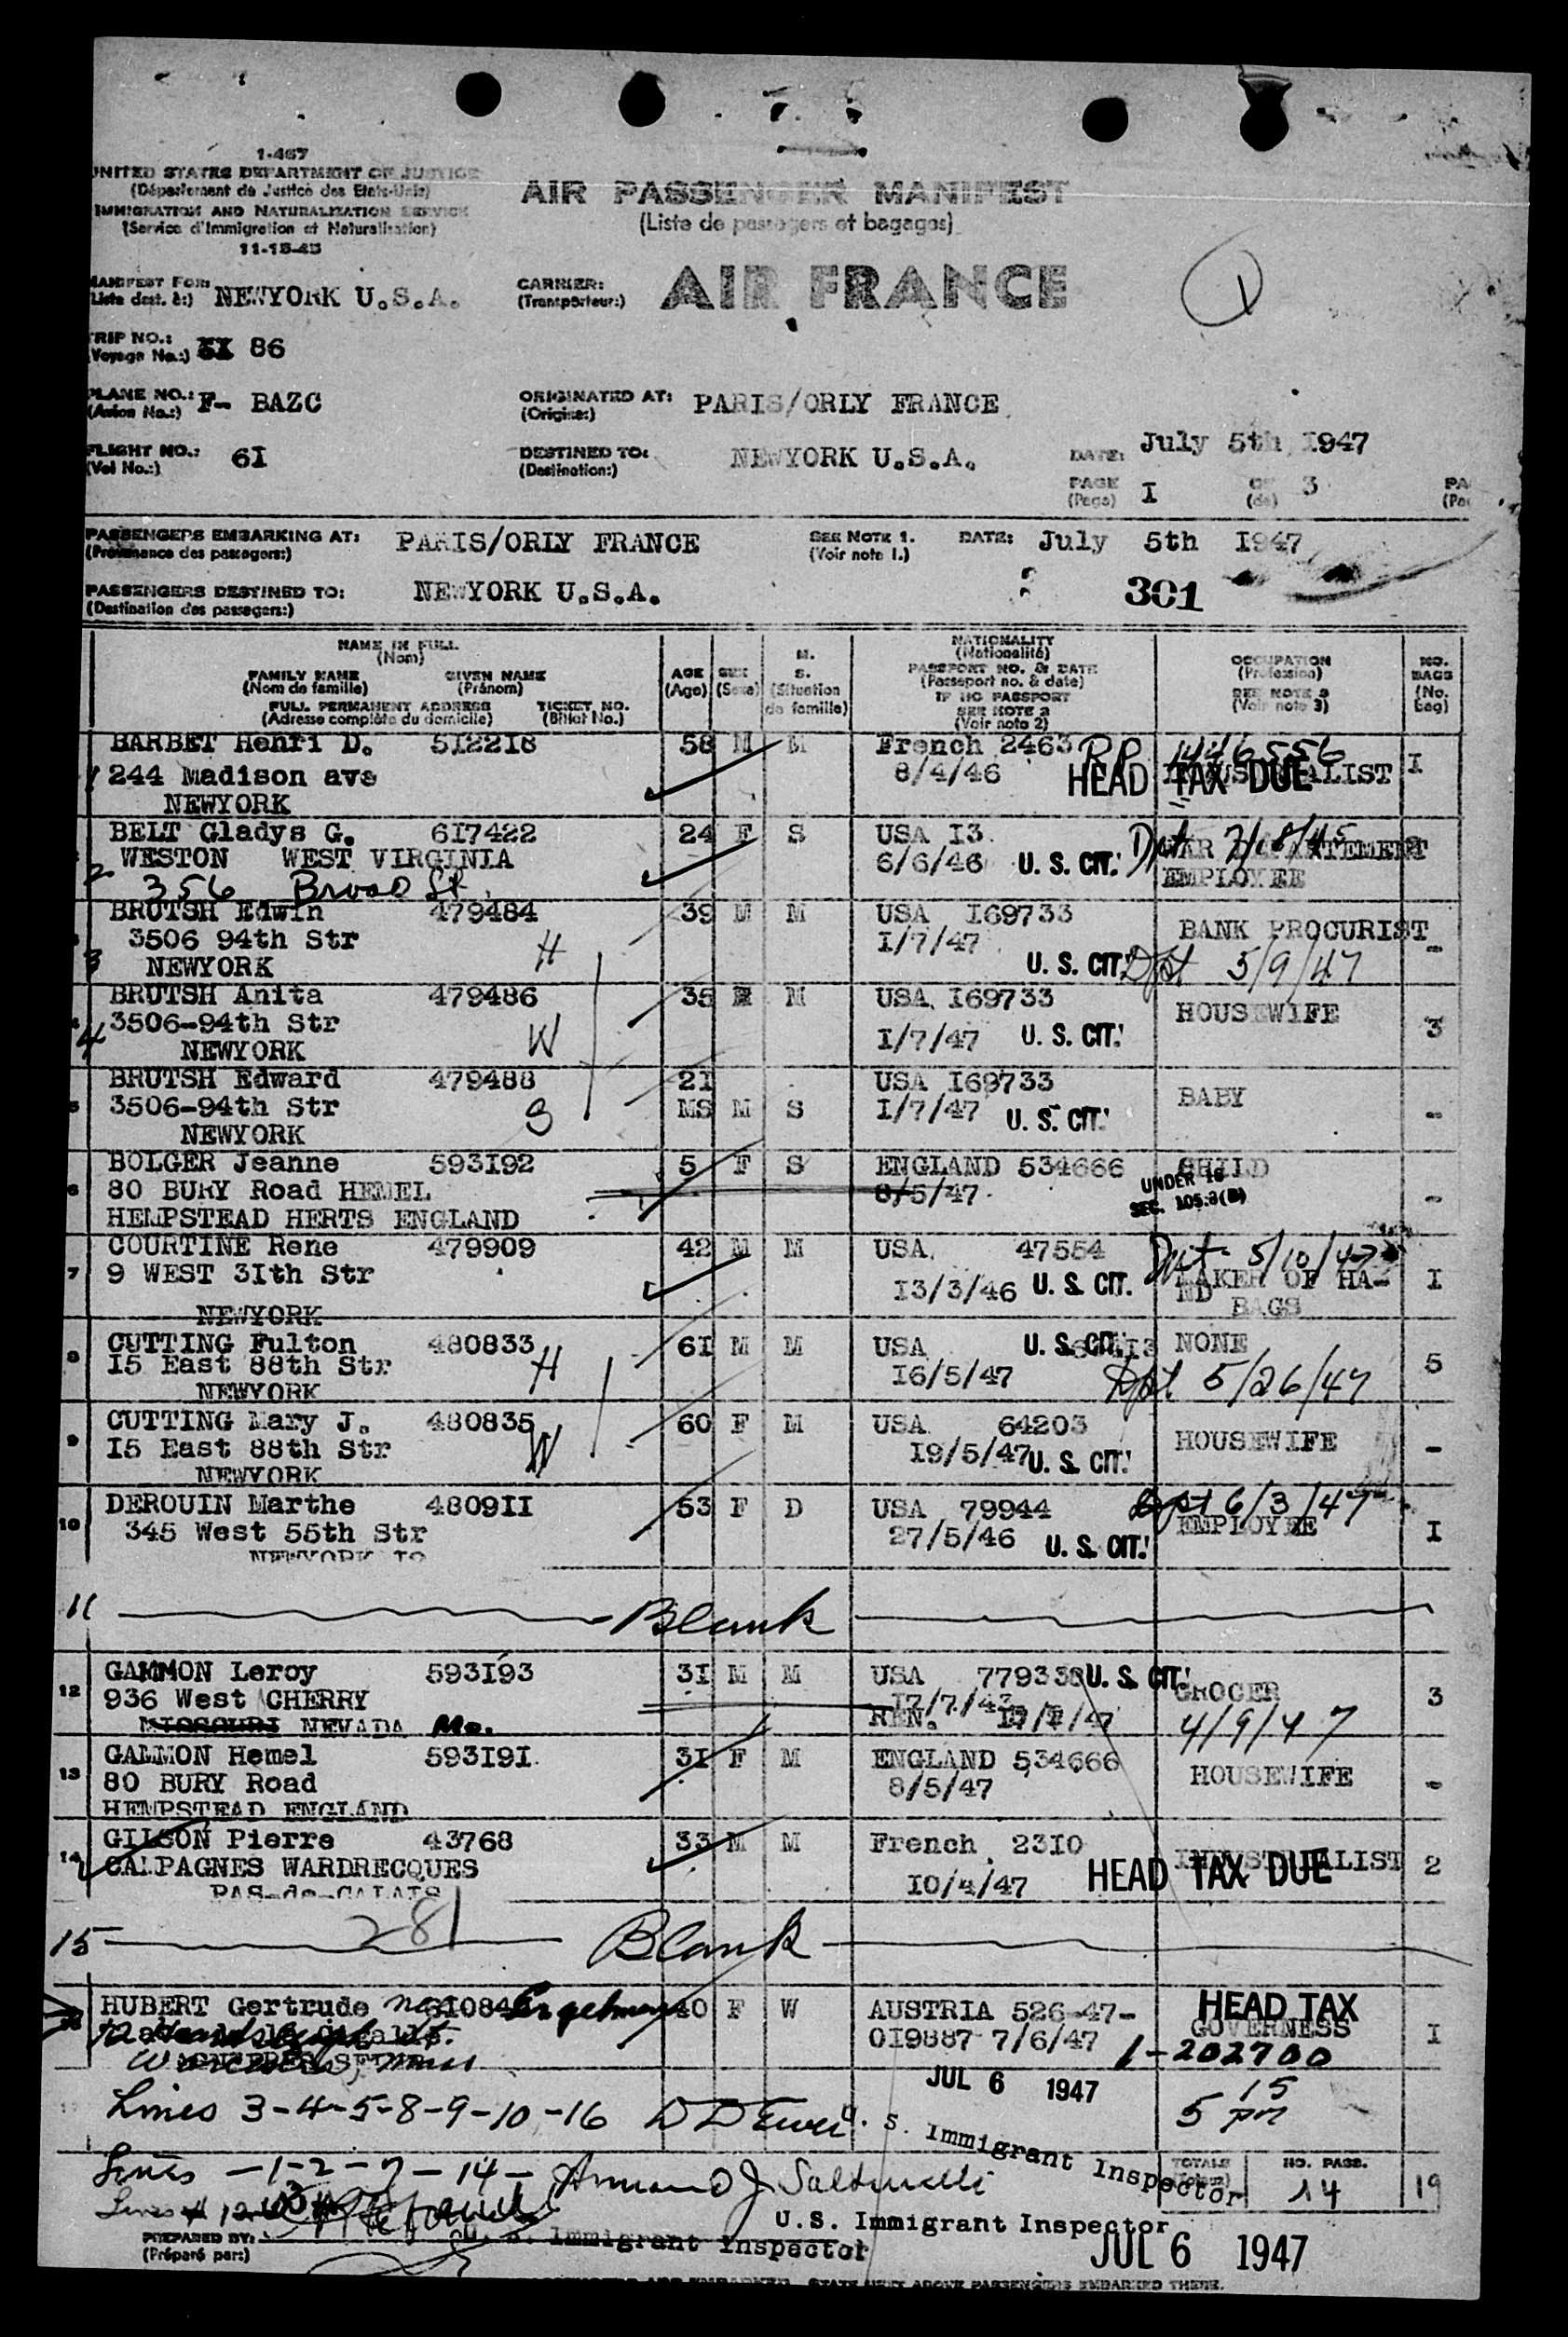 1-467
UNITED STATES DEPARTMENT OF JUSTICE
(Département de Justice des Etats-Unis)
IMMIGRATION AND NATURALIZATION SERVICE
(Service d'Immigration et Naturalisation)
11-15-43
AIR PASSENGER MANIFEST
(Liste de passagers et bagages)
MANIFEST FOR: NEWYORK U.S.A.
(Liste dest. à:)
CARRIER: AIR FRANCE
(Transporteur:)
1
TRIP NO.: 86
(Voyage No.:)
PLANE NO.: F- BAZC
(Avion No.:)
ORIGINATED AT: PARIS/ORLY FRANCE
(Origine:)
FLIGHT NO.: 6I
(Vol No.:)
DESTINED TO: NEWYORK U.S.A.
(Destination:)
DATE: July 5th I947
PAGE I OF 3
(Page) (de)
PASSENGERS EMBARKING AT: PARIS/ORLY FRANCE
(Provenance des passagers:)
SEE NOTE 1. DATE: July 5th I947
(Voir note 1.)
PASSENGERS DESTINED TO: NEWYORK U.S.A.
(Destination des passagers:)
301
NAME IN FULL
(Nom)
FAMILY NAME GIVEN NAME
(Nom de famille) (Prénom)
FULL PERMANENT ADDRESS TICKET NO.
(Adresse complète du domicile) (Billet No.)
AGE
(Age)
SEX
(Sexe)
M.
S.
(Situation
de famille)
NATIONALITY
(Nationalité)
PASSPORT NO. & DATE
(Passeport no. & date)
IF NO PASSPORT
SEE NOTE 2
(Voir note 2)
OCCUPATION
(Profession)
SEE NOTE 3
(Voir note 3)
NO.
BAGS
(No.
bag)
BARBET Henri D. 5I22I8 58 M M French 2463 RP 1446556
1 244 Madison ave 8/4/46 HEAD TAX DUE I
NEWYORK
BELT Gladys G. 6I7422 24 F S USA I3 Dpt 7/18/45
2 WESTON WEST VIRGINIA 6/6/46 U. S. CIT. WAR DEPARTEMENT
356 Broad St. EMPLOYEE
BRUTSH Edwin 479484 39 M M USA I69733
3 3506 94th Str I/7/47 BANK PROCURIST -
NEWYORK H U. S. CIT. Dpt 5/9/47
BRUTSH Anita 479486 35 M USA I69733 HOUSEWIFE
4 3506-94th Str W I/7/47 U. S. CIT. 3
NEWYORK
BRUTSH Edward 479488 2I USA I69733 BABY
5 3506-94th Str S MS M S I/7/47 U. S. CIT. -
NEWYORK
BOLGER Jeanne 593I92 5 F S ENGLAND 534666 CHILD
6 80 BURY Road HEMEL 8/5/47 UNDER 16 -
HEMPSTEAD HERTS ENGLAND SEC. 105.3(B)
COURTINE Rene 479909 42 M M USA 47554 Dpt 5/10/47
7 9 WEST 3Ith Str I3/3/46 U. S. CIT. MAKER OF HA- I
NEWYORK ND BAGS
CUTTING Fulton 480833 6I M M USA U. S. CIT. NONE
8 I5 East 88th Str H I6/5/47 Dpt 5/26/47 5
NEWYORK
CUTTING Mary J. 480835 60 F M USA 64203
9 I5 East 88th Str W I9/5/47 U. S. CIT. HOUSEWIFE -
NEWYORK
DEROUIN Marthe 4809II 53 F D USA 79944 Dpt 6/3/47
10 345 West 55th Str 27/5/46 U. S. CIT. EMPLOYEE I
NEWYORK I9
11 Blank
GAMMON Leroy 593I93 3I M M USA 779338 U. S. CIT.
12 936 West CHERRY I7/7/43 GROCER 3
MISSOURI NEVADA Mo. REN. 4/9/47
GAMMON Hemel 593I9I 3I F M ENGLAND 534666
13 80 BURY Road 8/5/47 HOUSEWIFE -
HEMPSTEAD ENGLAND
GILSON Pierre 43768 33 M M French 23I0 INDUSTRIALIST 2
14 CAMPAGNES WARDRECQUES I0/4/47 HEAD TAX DUE
PAS-de-CALAIS
281
15 Blank
HUBERT Gertrude 40 F W AUSTRIA 526-47- HEAD TAX
0I9887 7/6/47 GOVERNESS I
1-202700
JUL 6 1947
Lines 3-4-5-8-9-10-16 U. S. Immigrant Inspector 5 15 pm
Lines -1-2-7-14-
TOTALS NO. PASS. 14 19
U.S. Immigrant Inspector
PREPARED BY: U. S. Immigrant Inspector
(Préparé par:)
JUL 6 1947